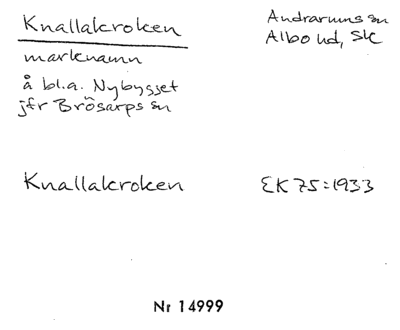 Knallakroken
Andrarums sn
Albo hd, Sk
marknamn
å bl.a. Nybygget
jfr Brösarps sn
Knallakroken
EK 75:1933
Nr 14999